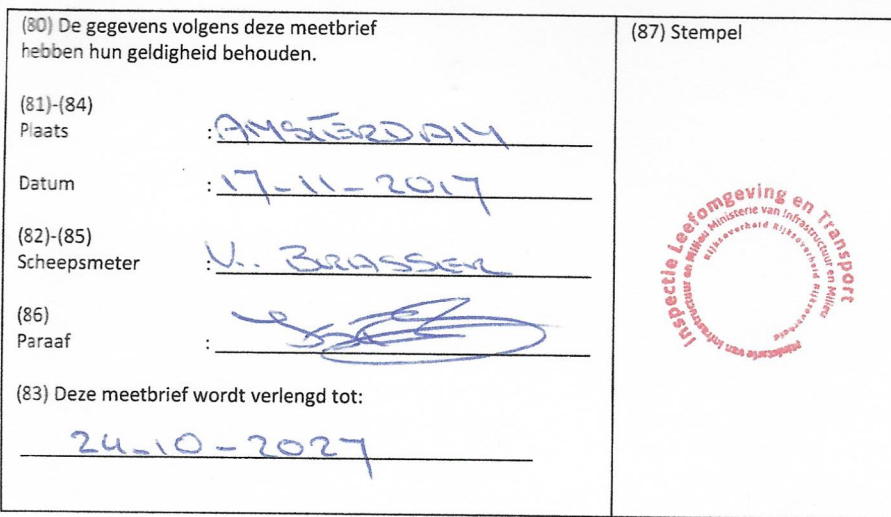 (80) De gegevens volgens deze meetbrief
hebben hun geldigheid behouden.
(81)-(84)
Plaats : AMSTERDAM
Datum : 17-11-2017
(82)-(85)
Scheepsmeter : V. BRASSER
(86)
Paraaf :
(83) Deze meetbrief wordt verlengd tot:
24-10-2027
(87) Stempel
Inspectie Leefomgeving en Transport
Ministerie van Infrastructuur en Milieu Ministerie van Infrastructuur en Milieu
Rijksoverheid Rijksoverheid Rijksoverheid